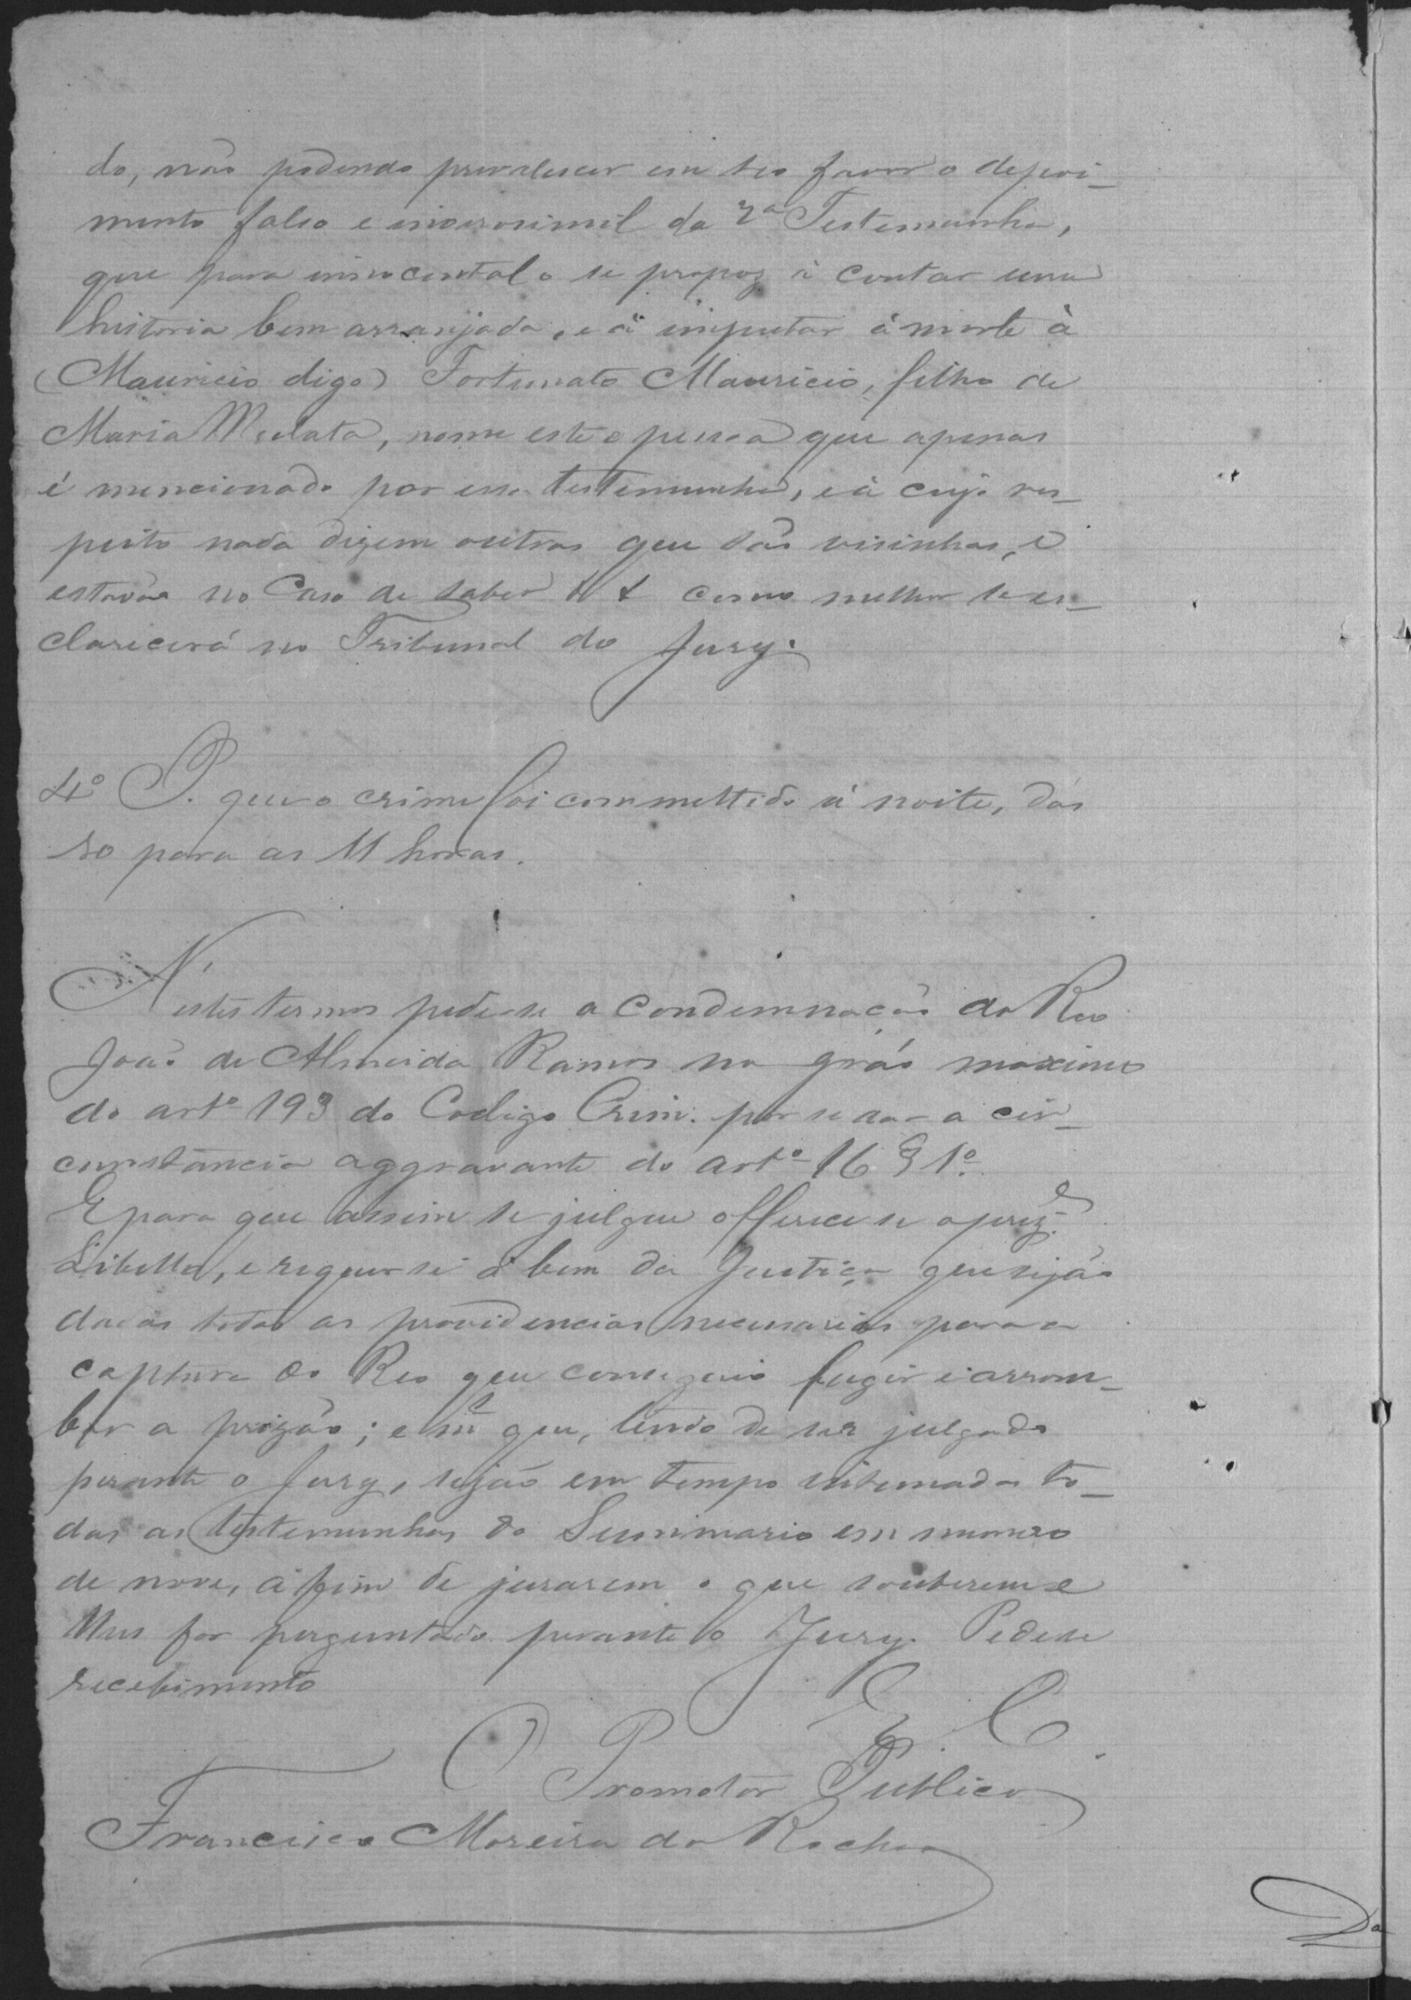 do, não podendo prevalescer em seo favor o depoi-
mento falso e inverosimil da 2ª Testemunha,
que para innocental o se propoz à contar uma
historia bem arranjada, e à imputar á morte à
(Mauricio digo) Fortunato Mauricio, filho de
Maria Mulata, nome este e pessoa que apenas
é mencionado por essa testemunha, e à cujo res-
peito nada dizem outros que são visinhos, e
estavão no caso de saber como melhor se es-
clarecerá no Tribunal do Jury.
4º P. que o crime foi commettido á noite, das
10 para as 11 horas.
N'estes termos pede-se a condemnação do Reo
João de Almeida Ramos no gráo maximo
do artº 193 do Codigo Crim. por se dar a cir-
cunstância aggravante do artº 16 § 1º.
E para que assim se julgue offerece se o prezᵉ
Libello, e requer se a bem da Justiça que sejão
dadas todas as providencias necessarias para a
captura do Reo que conseguio fugir e arrom-
bar a prizão; e que, tendo de ser julgado
perante o Jury, sejão em tempo intimadas to-
das as testemunhas do Summario em numero
de nove, a fim de jurarem o que souberem e
lhes for perguntado perante o Jury. Pede se
recebimento
E C
O Promotor Publico
Francisco Moreira da Rocha
Da